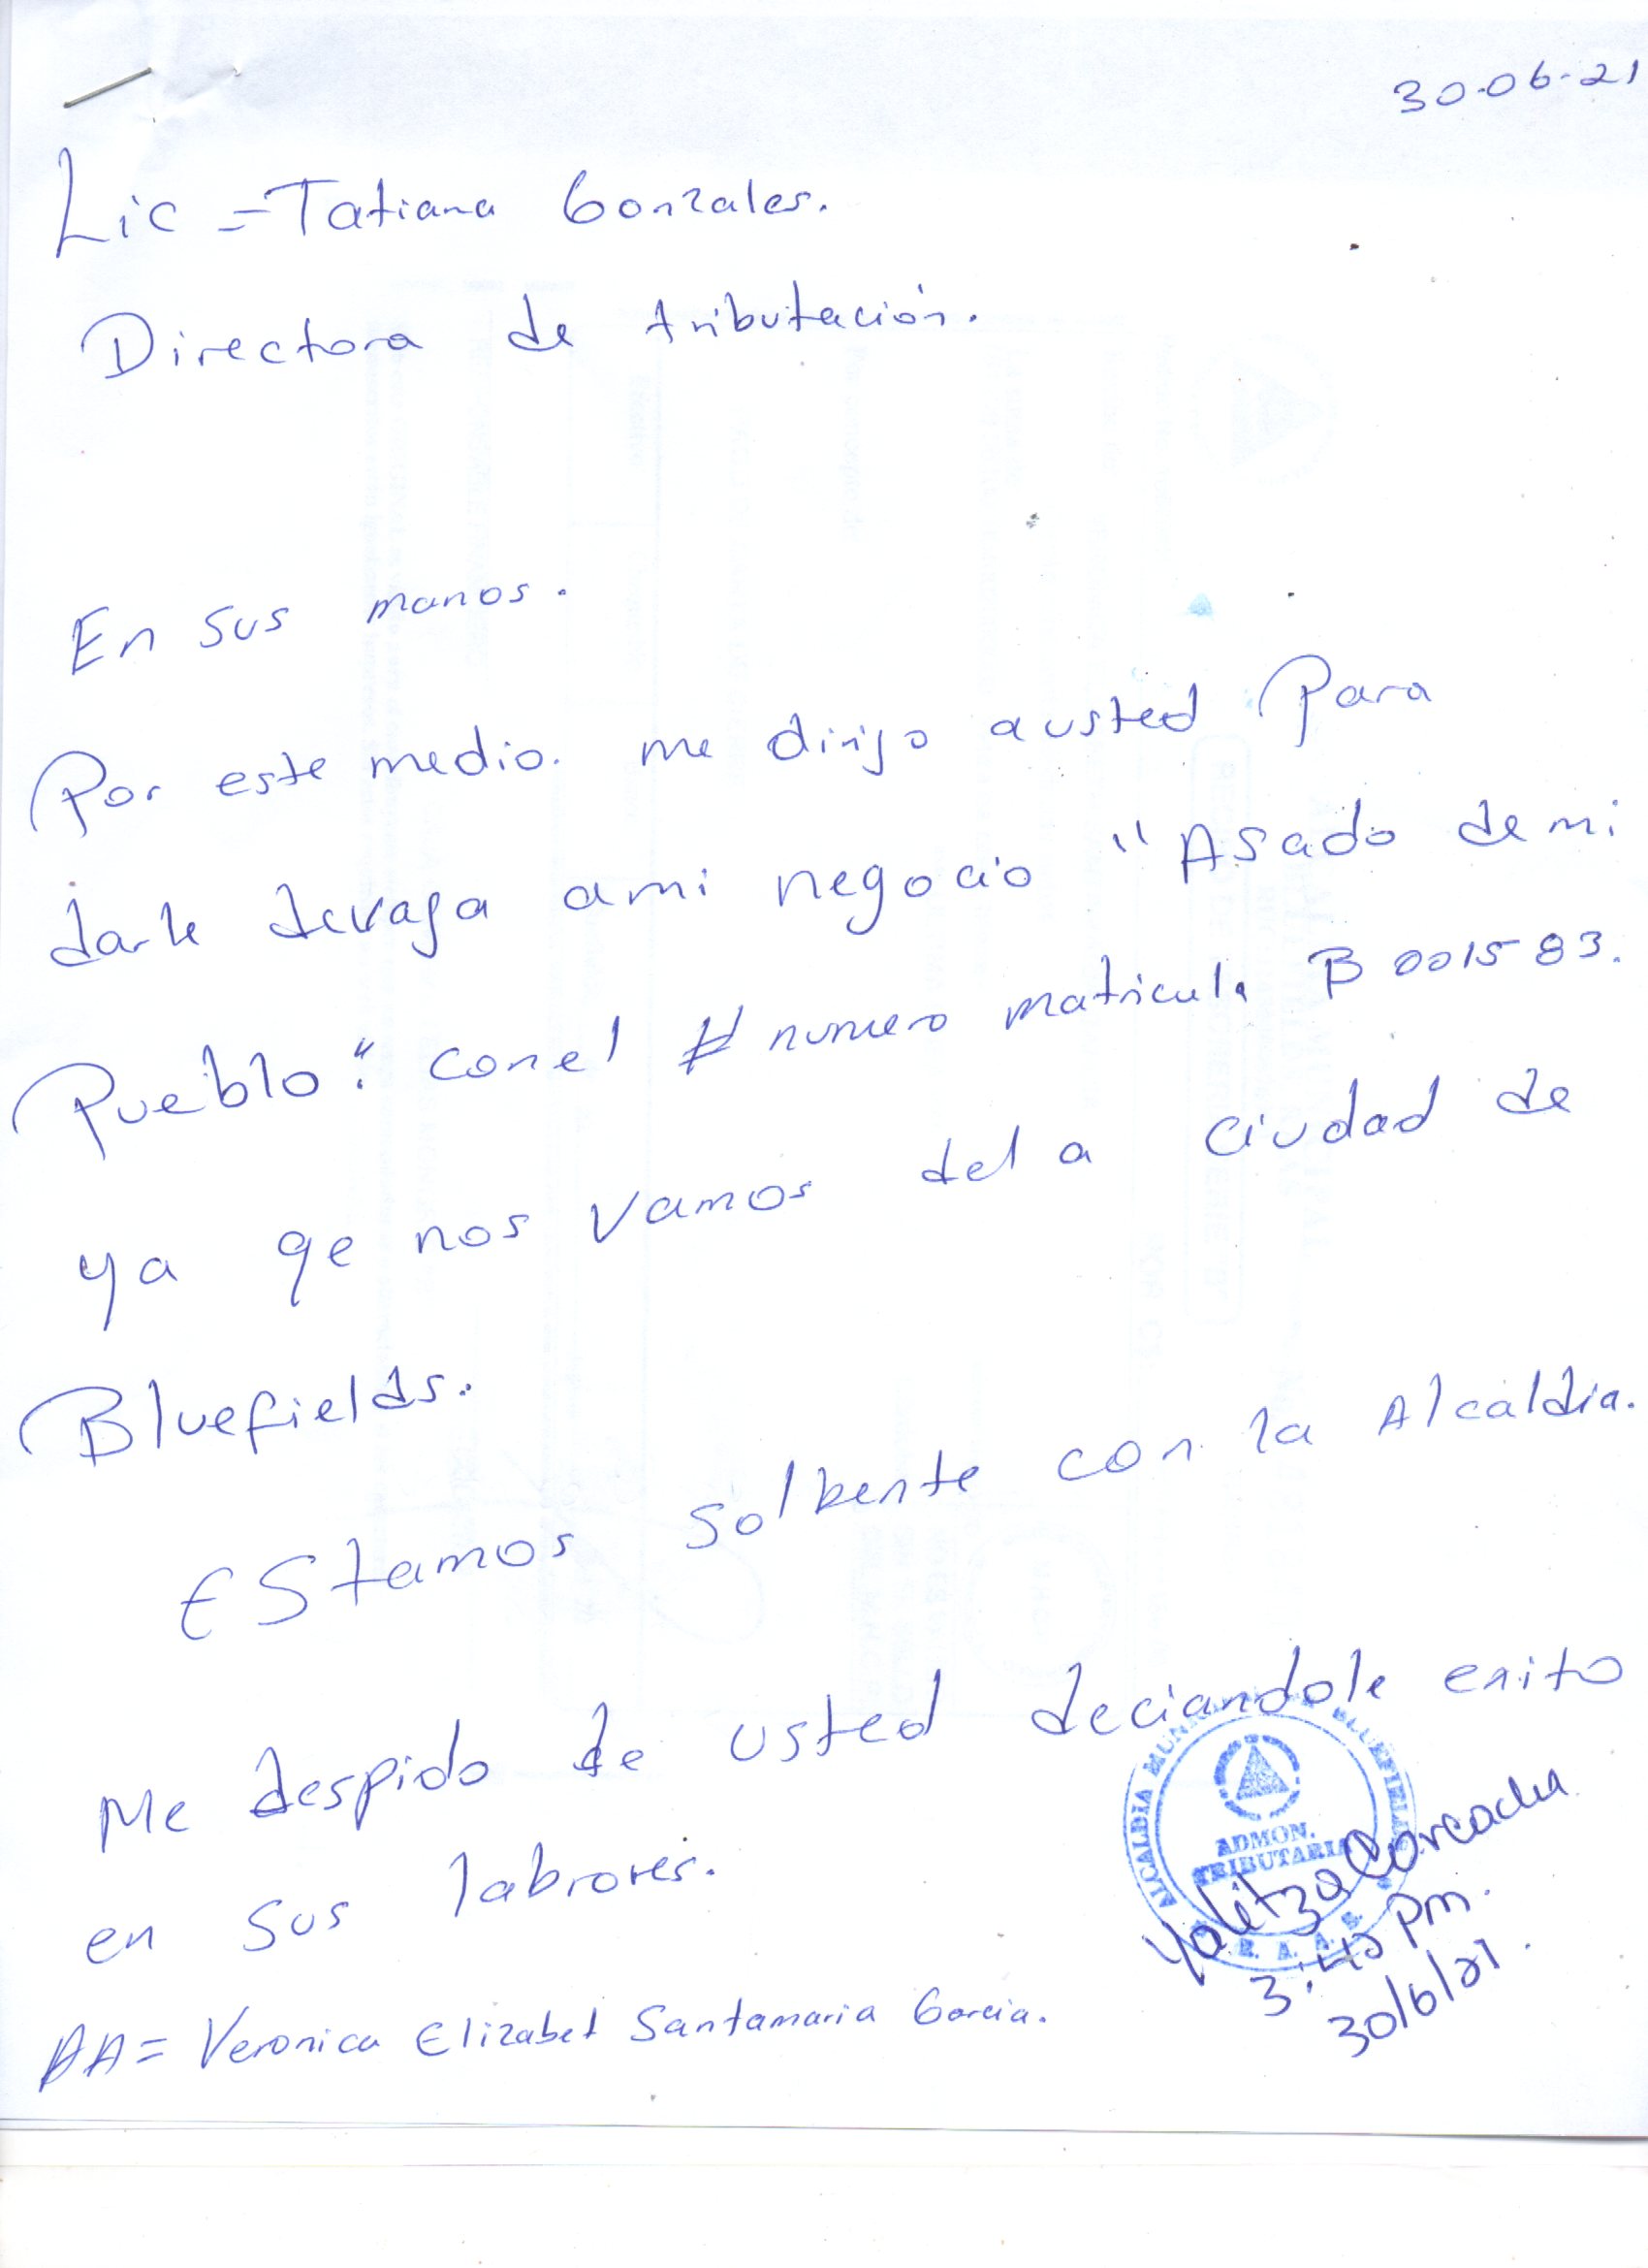 30-06-21
Lic = Tatiana Gonzales.
Directora de tributación.
En sus manos.
Por este medio. me dirijo a usted Para
darle devaja ami negocio "Asado de mi
Pueblo". con el # numero matricula B 001583.
ya qe nos vamos del a ciudad de
Bluefields.
Estamos solbente con la Alcaldia.
Me despido de usted deciandole exito
en sus labrores.
AA= Veronica Elizabet Santamaria Garcia.
ALCALDIA MUNICIPAL BLUEFIELDS
ADMON.
TRIBUTARIA
R. A. A. S.
Yalitza
3:45 pm.
30/6/21.